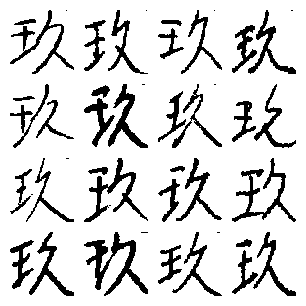 玖玖玖玖
玖玖玖玖
玖玖玖玖
玖玖玖玖